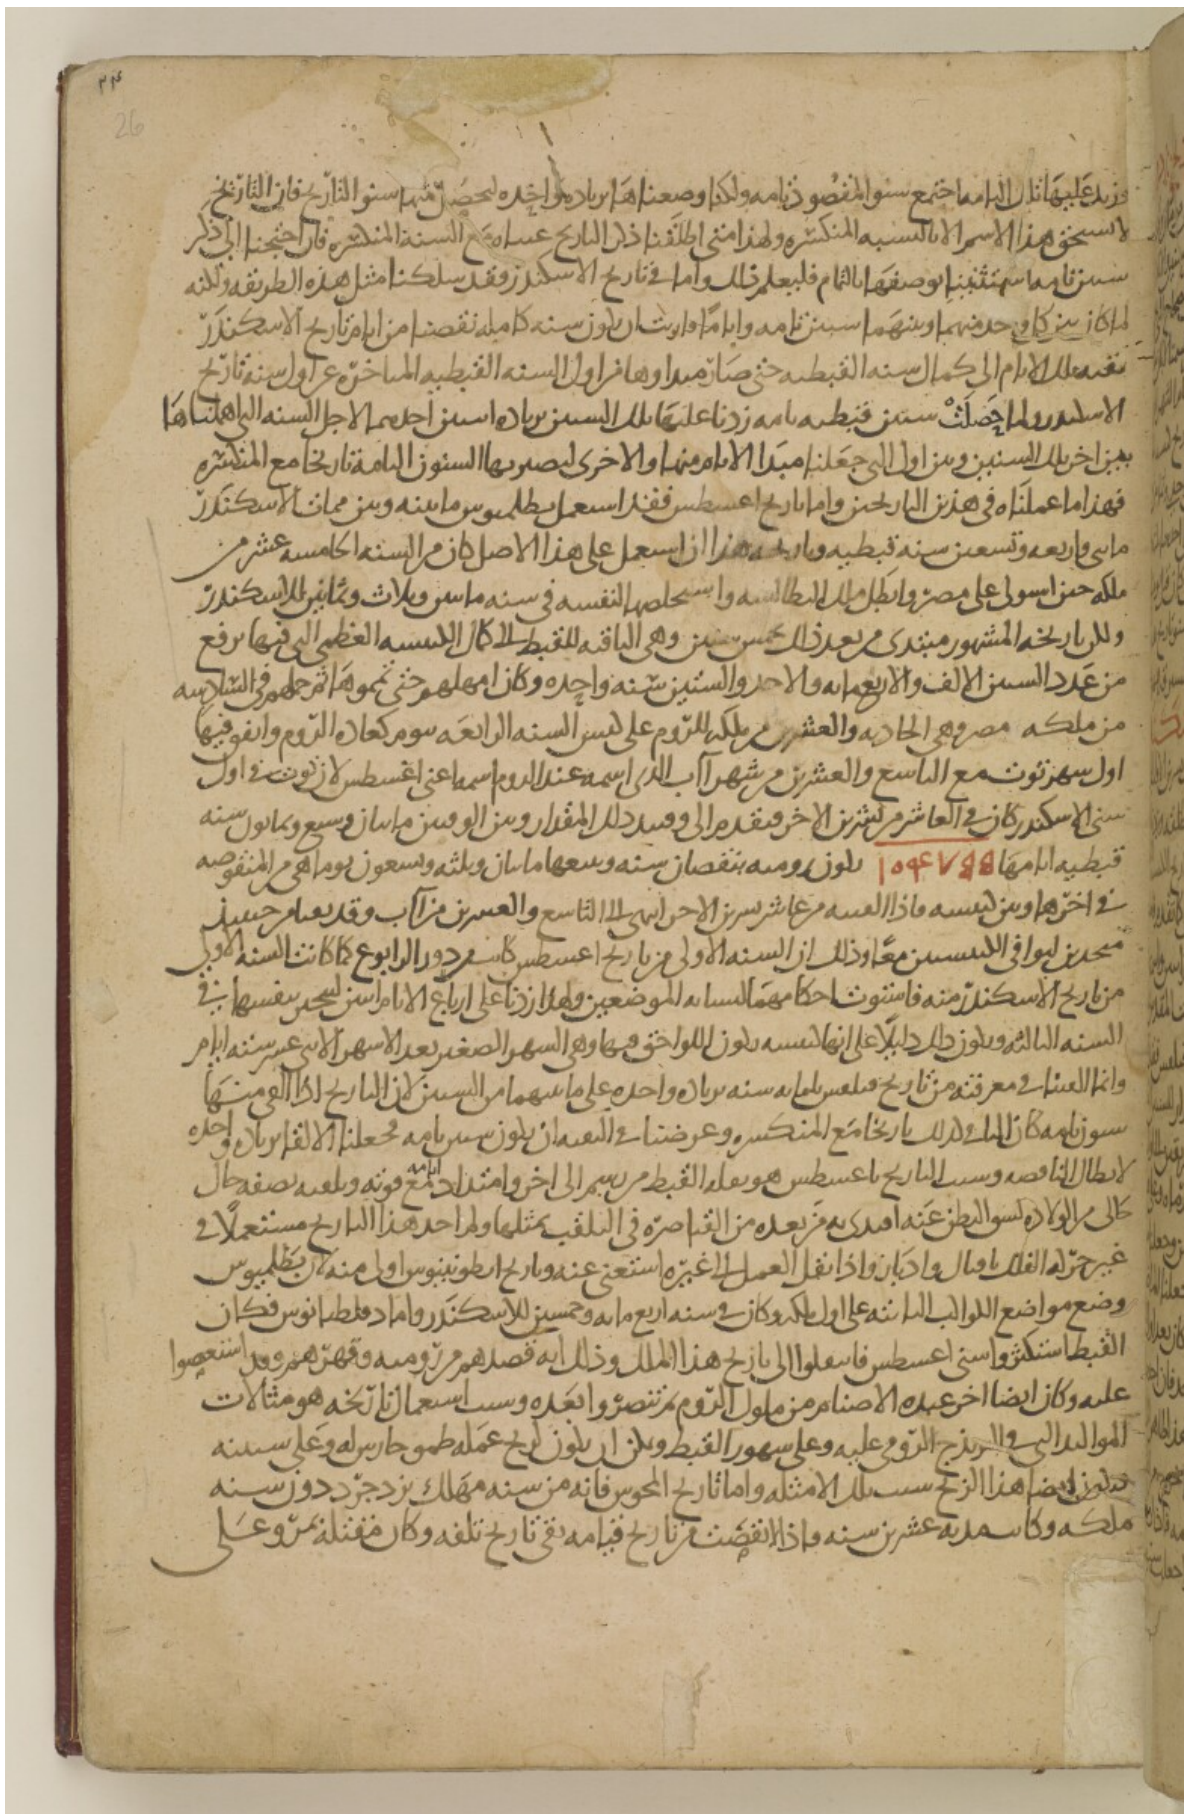 ٢٤
26
وزيد عليها تلك التامه اجتمع سنو المقصود تامه ولكنا وضعناها بزياده واحده ليحصل منها سنو التاريخ فان التاريخ
لا يستحق هذا الاسم الا بالنسبه المنكسره ولهذا متى اطلقنا ذكر التاريخ عنيناه مع السنة المنكسره فان احتجنا الى ذكر
سنين تامه استثنينا بوصفها بالتمام فليعلم ذلك واما في تاريخ الاسكندر فقد سلكنا مثل هذه الطريقه ولكنه
لما كان بين كل واحد منهما وبينهما سنين تامه واياما واردت ان يكون سنه كامله نقصنا من ايام تاريخ الاسكندر
بقيه تلك الايام الى كمال سنه القبطيه حتى صار مبداوها من اول السنه القبطيه المتاخره عن اول سنه تاريخ
الاسكندر ولما حصلت سنين قبطيه تامه زدنا عليها تلك السنين بزياده اثنين احديهما لاجل السنه التي اهملناها
بين اخر تلك السنين وبين اول التي جعلنا مبدا الايام منها والاخرى ليصير بها السنون التامة تاريخا مع المنكسره
فهذا ما عملناه في هذين التاريخين واما تاريخ اغسطس فقد استعمل بطلميوس ما بينه وبين ممات الاسكندر
مايتى واربعه وتسعين سنه قبطيه وتاريخه هذا ان استعمل على هذا الاصل كان من السنه الخامسه عشر من
ملكه حين استولى على مصر وابطل ملك البطالسه واستخلصها لنفسه في سنه مايتين وثلاث وثمانين للاسكندر
ولكن تاريخه المشهور مبتدى من بعد ذلك بخمس سنين وهي الباقيه للقبط الى كمال الكبيسه العظمى التي فيها يرفع
من عدد السنين الالف والاربعمايه والاحد والستين سنه واحده وكان امهلهم حتى تمموها ثم حملهم في السادسه
من ملكه مصر وهي الحاديه والعشرين من ملكه للروم على كبس السنه الرابعه بيوم كعادة الروم واتفق فيها
اول شهر توت مع التاسع والعشرين من شهر آب الذي اسمه عند الروم اسمه اعنى اغسطس لان توت في اول
سنى الاسكندر كان في العاشر من تشرين الاخر فتقدم الى وقتيذ ذلك المقدار وبين الوقتين مايتان وسبع وثمانون سنه
قبطيه ايامها ١٥٤٧٥٥ يكون روميه بنقصان سنه ومعها مايتان وثلثه وتسعون يوما هي من المنقوصه
في اخرها وبين كبيسه فاذا القيه من عاشر تشرين الاخر انتهى الى التاسع والعشرين من آب وقد بقيا من حينيذ
متحدين لتوافى الكبيستين معا وذلك ان السنه الاولى من تاريخ اغسطس كانت من دور الرابوع كما كانت السنه الاولى
من تاريخ الاسكندر منه فاستوت احكامهما لتشابه الموضعين ولهذا زدنا على ارباع الايام اثنين لينجبر بنفسها في
السنه الثالثه ويكون ذلك دليلا على انها كبيسه يكون اللواحق فيها وهي الشهر الصغير بعد الاشهر الاثنى عشر سته ايام
وانما القينا في معرفته من تاريخ فيلفس ثلثمايه سنه بزياده واحده على ما بينهما من السنين لان التاريخ اذا القى منها
سنون تامه كان الباقي كذلك تاريخا مع المنكسره وغرضنا في البقيه ان يكون سنين تامه فجعلنا الالقا بزياده واحده
لابطال الناقصه ونسبت التاريخ باغسطس هو بفعل القبط من رسم الى اخر وامتداد ايامه مع قوته وتلقبه بصفه حال
كالى من الولاده لشق البطن عنه اقتدى به من بعده من القياصره في التلقب بمثلها ولم اجد هذا التاريخ مستعملا في
غير حركه الفلك باقبال وادبار واذا نقل العمل الى غيره استغنى عنه وتاريخ انطونينوس اولى منه لان بطلميوس
وضع مواضع الكواكب الثابته على اول ملكه وكان في سنه اربع مايه وخمسين للاسكندر واما دقلطيانوس فكان
القبط استكثروا سنى اغسطس فانتقلوا الى تاريخ هذا الملك وذلك انه قصدهم من روميه وقهرهم وقد استعصوا
عليه وكان ايضا اخر عبده الاصنام من ملوك الروم ثم تنصروا بعده وسبب استعمال تاريخه هو مثالات
المواليد التي في البزيذج الرومى عليه وعلى شهور القبط ويمكن ان يكون زيج عمله طمو جارس له وعلى سنينه
فيكون ايضا هذا الزيج سبب تلك الامثله واما تاريخ المجوس فانه من سنه مهلك يزدجرد دون سنه
ملكه وكانت مدته عشرين سنه واذا انقضت من تاريخ قيامه بقى تاريخ تلفه وكان مقتله بمرو على